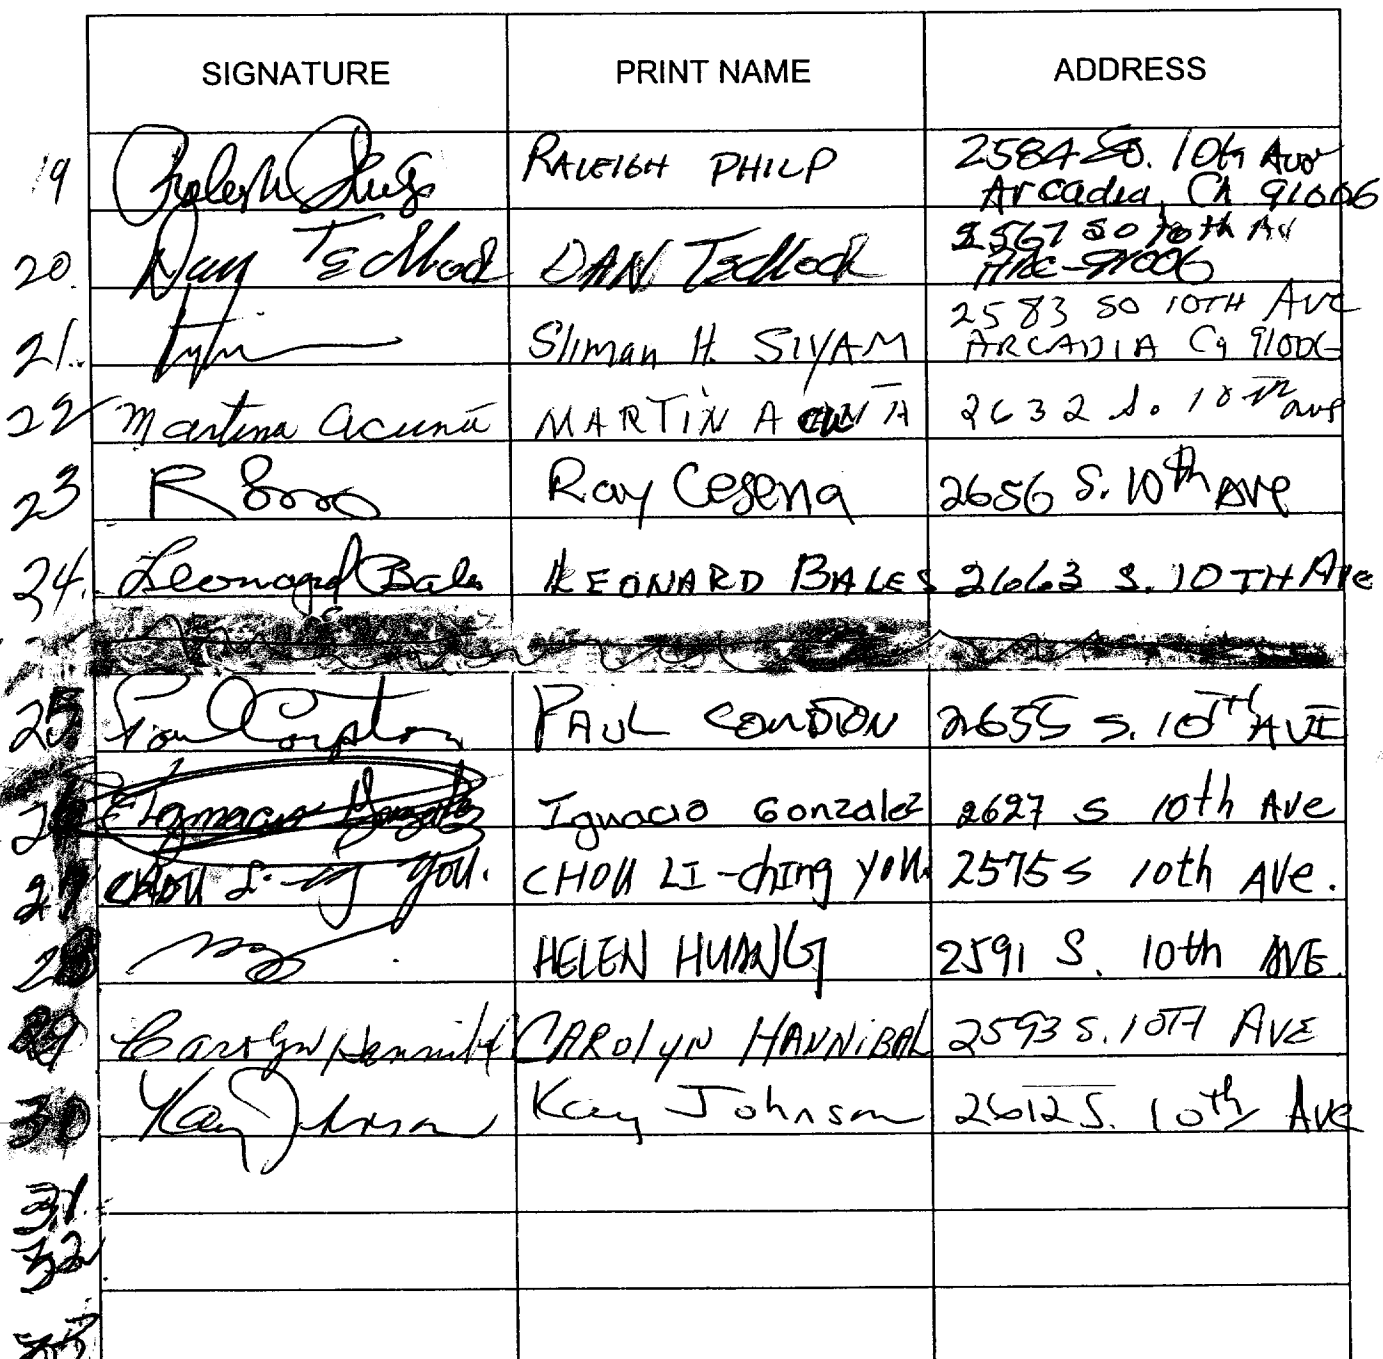 SIGNATURE PRINT NAME ADDRESS
19 RALEIGH PHILP 2584 So. 10th Ave
Arcadia, CA 91006
20. Dan Tedlock DAN Tedlock 2567 So 10th Av
ARC-91006
21. Sliman H. SIYAM 2583 SO 10TH AVE
ARCADIA Ca 91006
22 Martina acuña MARTIN ACUÑA 2632 So. 10TH ave
23 R Ray Cesena 2656 S. 10th AVe
24. Leonard Bales LEONARD BALES 2663 S. 10TH AVe
25 Paul PAUL 2655 S. 10TH AVE
26 Ignacio Gonzalez Ignacio Gonzalez 2627 S 10th Ave
27 CHOU you. CHOU LI-ching you. 2575 S 10th AVe.
28 HELEN HUANG 2591 S. 10th AVE.
29 Carolyn Hannibal CAROlYN HANNiBAL 2593 S. 10TH AVE
30 Kay Johnson Kay Johnson 2612 S. 10th Ave
31.
32
33